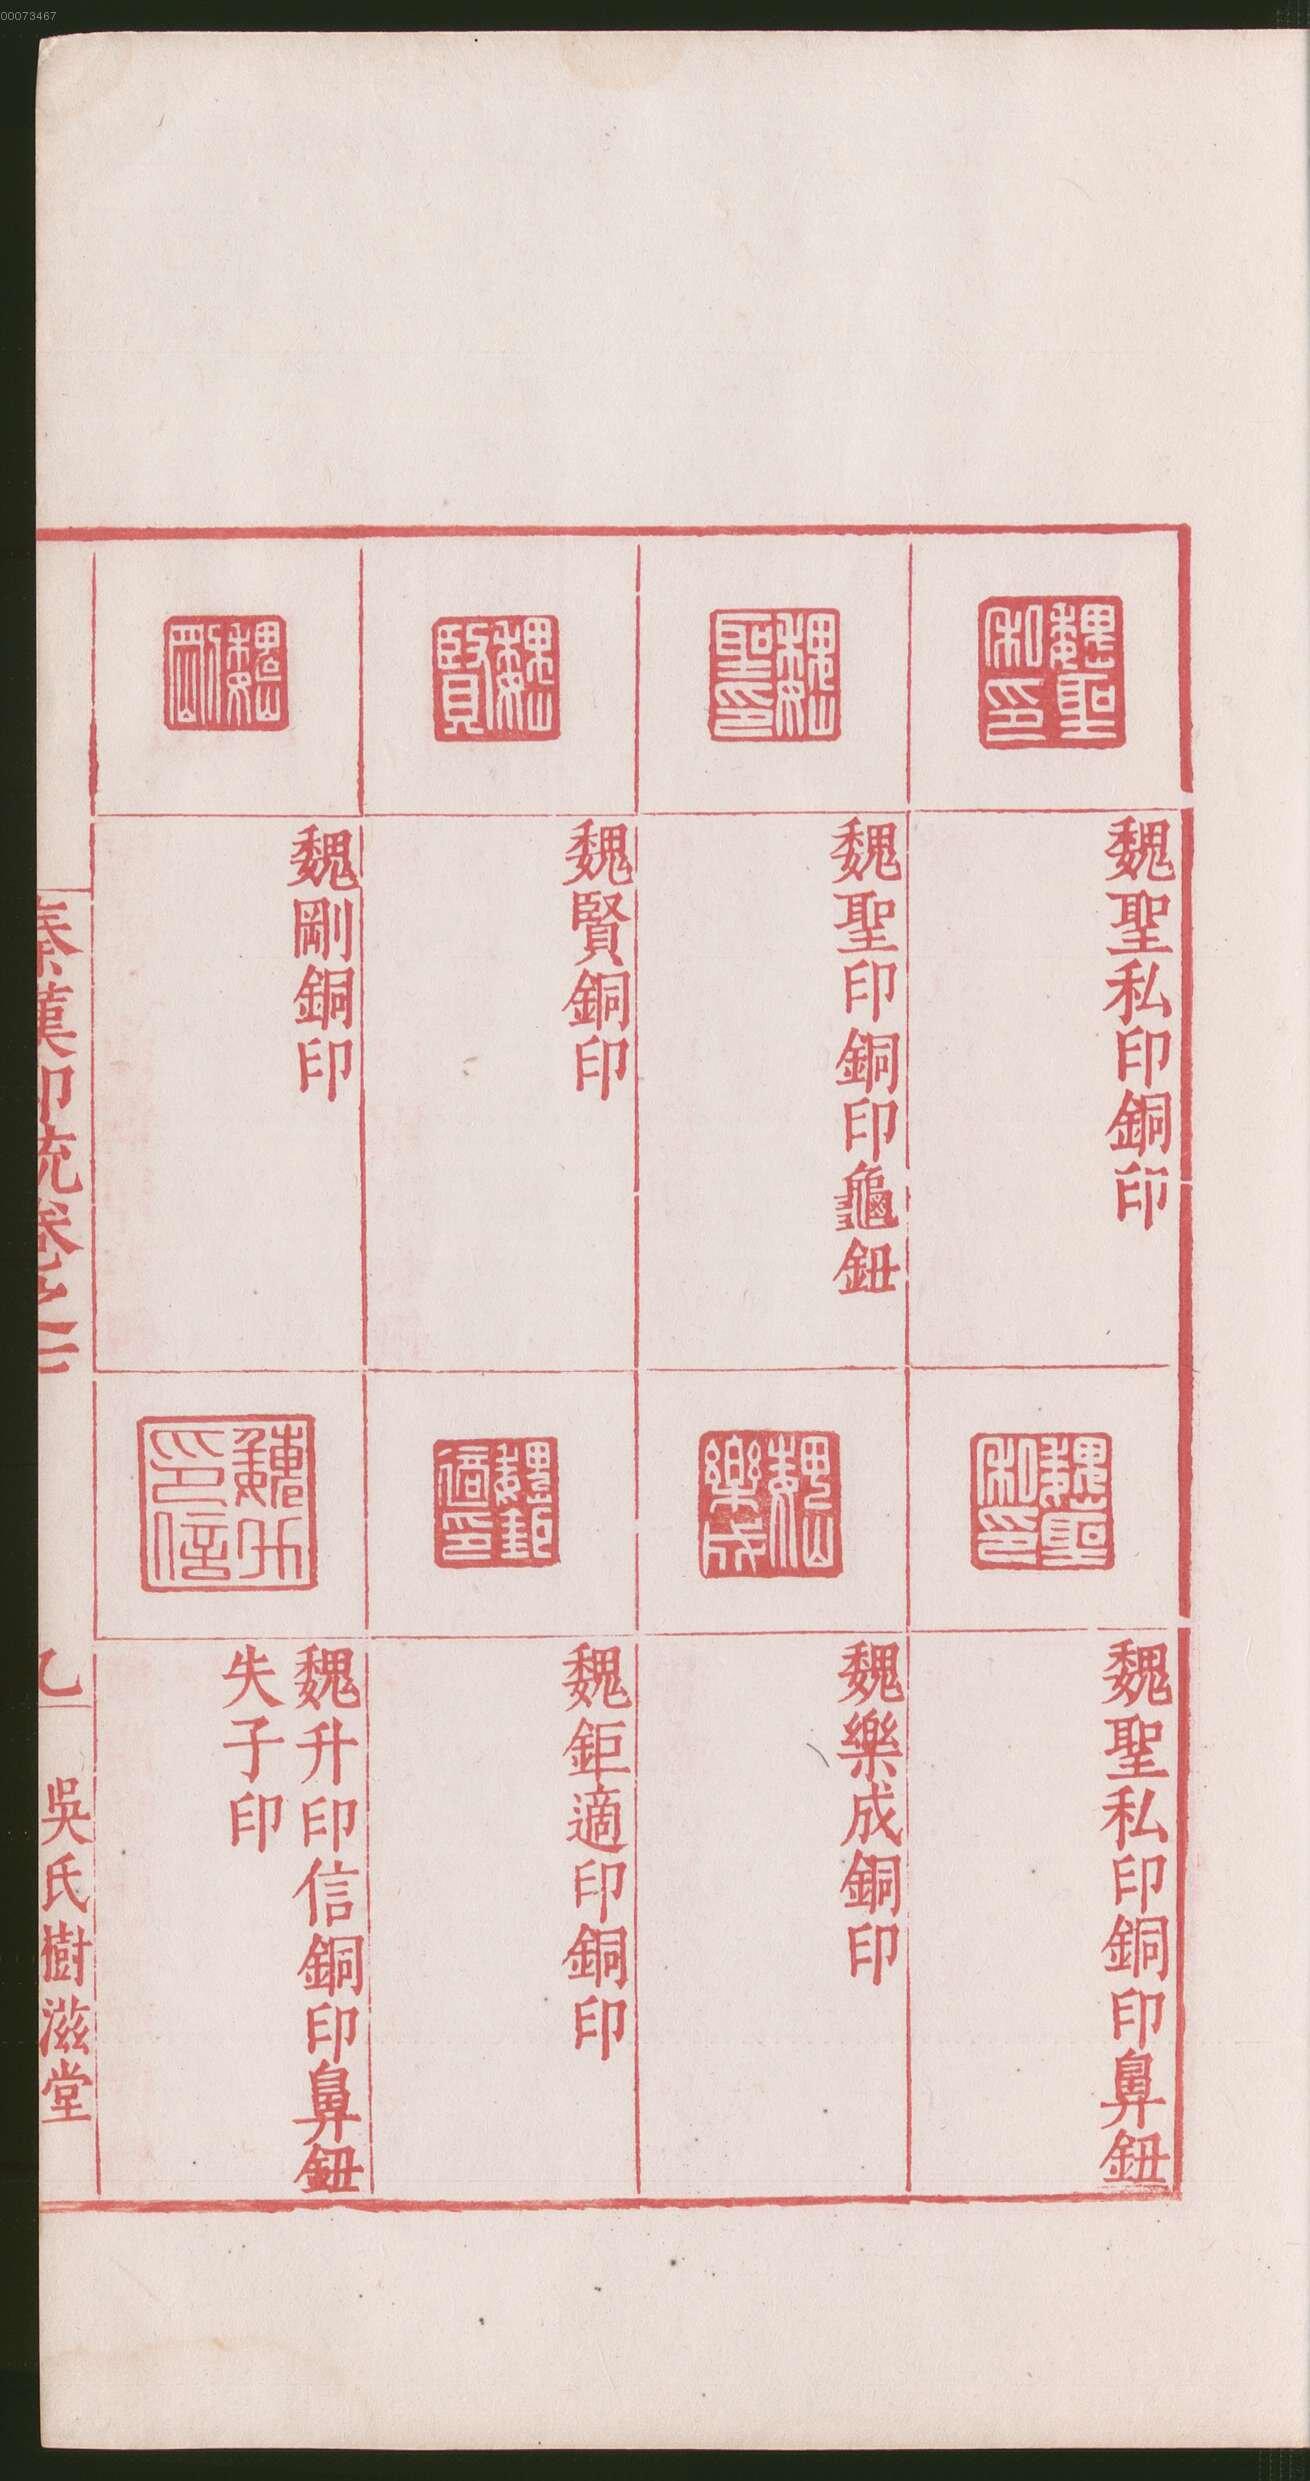 00073467
魏聖私印
魏聖私印銅印
魏聖印
魏聖印銅印龜鈕
魏賢
魏賢銅印
魏剛
魏剛銅印
魏聖私印
魏聖私印銅印鼻鈕
魏樂成
魏樂成銅印
魏鉅適印
魏鉅適印銅印
魏升印信
魏升印信銅印鼻鈕
失子印
秦漢印統卷之二
吳氏樹滋堂